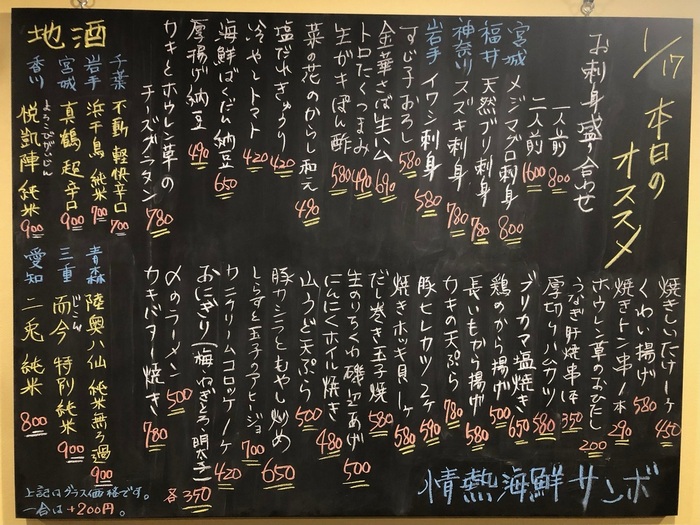 1/17 本日の
オススメ
お刺身盛り合わせ
一人前 800
二人前 1600
宮城 メジマグロ刺身 800
福井 天然ブリ刺身 780
神奈川 スズキ刺身 780
岩手 イワシ刺身 580
すじ子おろし 580
金華さば生ハム 690
トロたくつまみ 490
生ガキぽん酢 580
菜の花のからし和え 490
塩だれきゅうり 420
冷やしトマト 420
海鮮ばくだん納豆 650
厚揚げ納豆 490
カキとホウレン草の
チーズグラタン 780
焼きしいたけ一ヶ 450
くわい揚げ 580
焼きトン串1本 290
ホウレン草のおひたし 200
うなぎ肝焼串1本 350
厚切りハムカツ 580
ブリカマ塩焼き 650
鶏のから揚げ 500
長いもから揚げ 580
カキの天ぷら 780
豚ヒレカツ2ヶ 590
焼きホッキ貝一ヶ 580
だし巻き玉子焼 580
生のりちくわ磯辺あげ 500
にんにくホイル焼き 480
山うど天ぷら 500
豚カシラともやし炒め 650
しらすと玉子のアヒージョ 700
カニクリームコロッケ1ヶ 420
おにぎり(梅、ねぎとろ、明太子) 各350
〆のラーメン 500
カキバター焼き 780
地酒
千葉 不動 軽快辛口 700
岩手 浜千鳥 純米 700
宮城 真鶴 超辛口 900
香川 悦凱陣 純米 900
よろこびがいじん
青森 陸奥八仙 純米無ろ過 900
三重 而今 特別純米 900
じこん
愛知 二兎 純米 800
上記はグラス価格です。
一合は+200円。
情熱海鮮サンボ